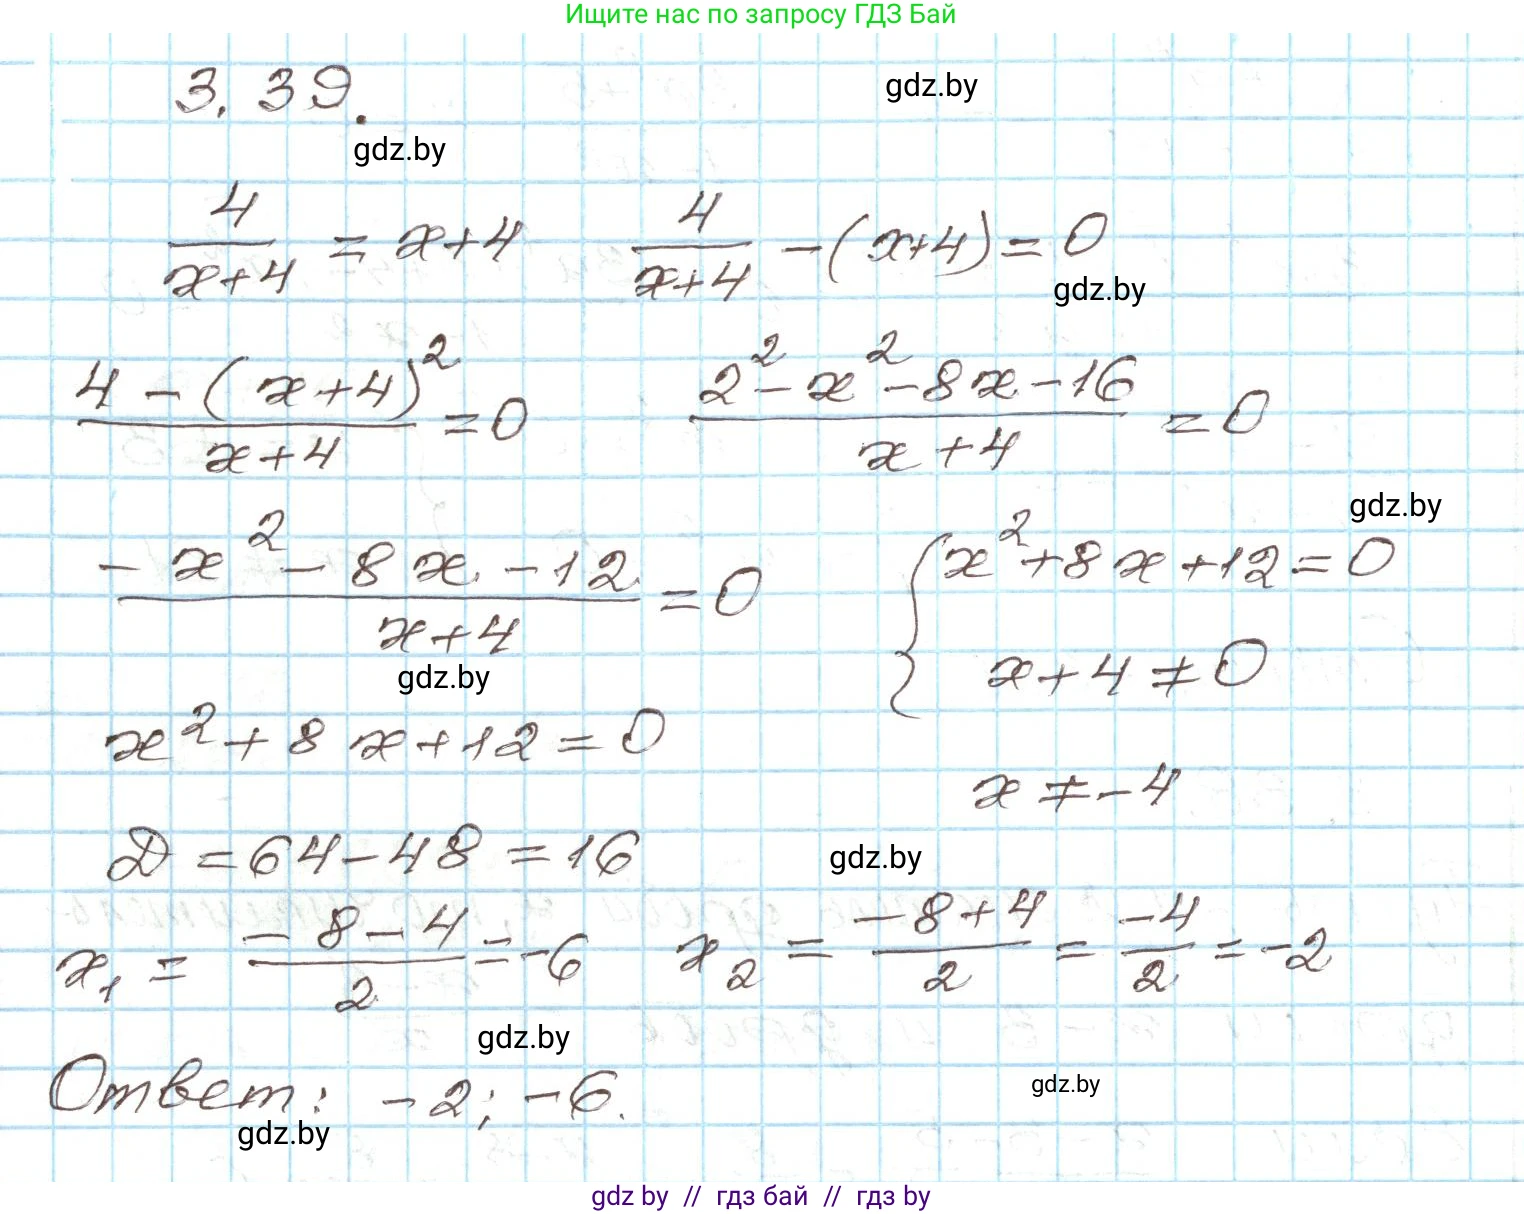 Ищите нас по запросу ГДЗ Бай
3.39.
gdz.by
gdz.by
4/(x+4) = x+4    4/(x+4) - (x+4) = 0
gdz.by
(4 - (x+4)²)/(x+4) = 0    (2² - x² - 8x - 16)/(x+4) = 0
gdz.by
(-x² - 8x - 12)/(x+4) = 0    { x² + 8x + 12 = 0
x+4 ≠ 0
gdz.by
x² + 8x + 12 = 0
x ≠ -4
D = 64 - 48 = 16
gdz.by
x₁ = (-8-4)/2 = -6    x₂ = (-8+4)/2 = -4/2 = -2
gdz.by
Ответ: -2; -6.
gdz.by
gdz.by
gdz by // гдз бай // гдз by